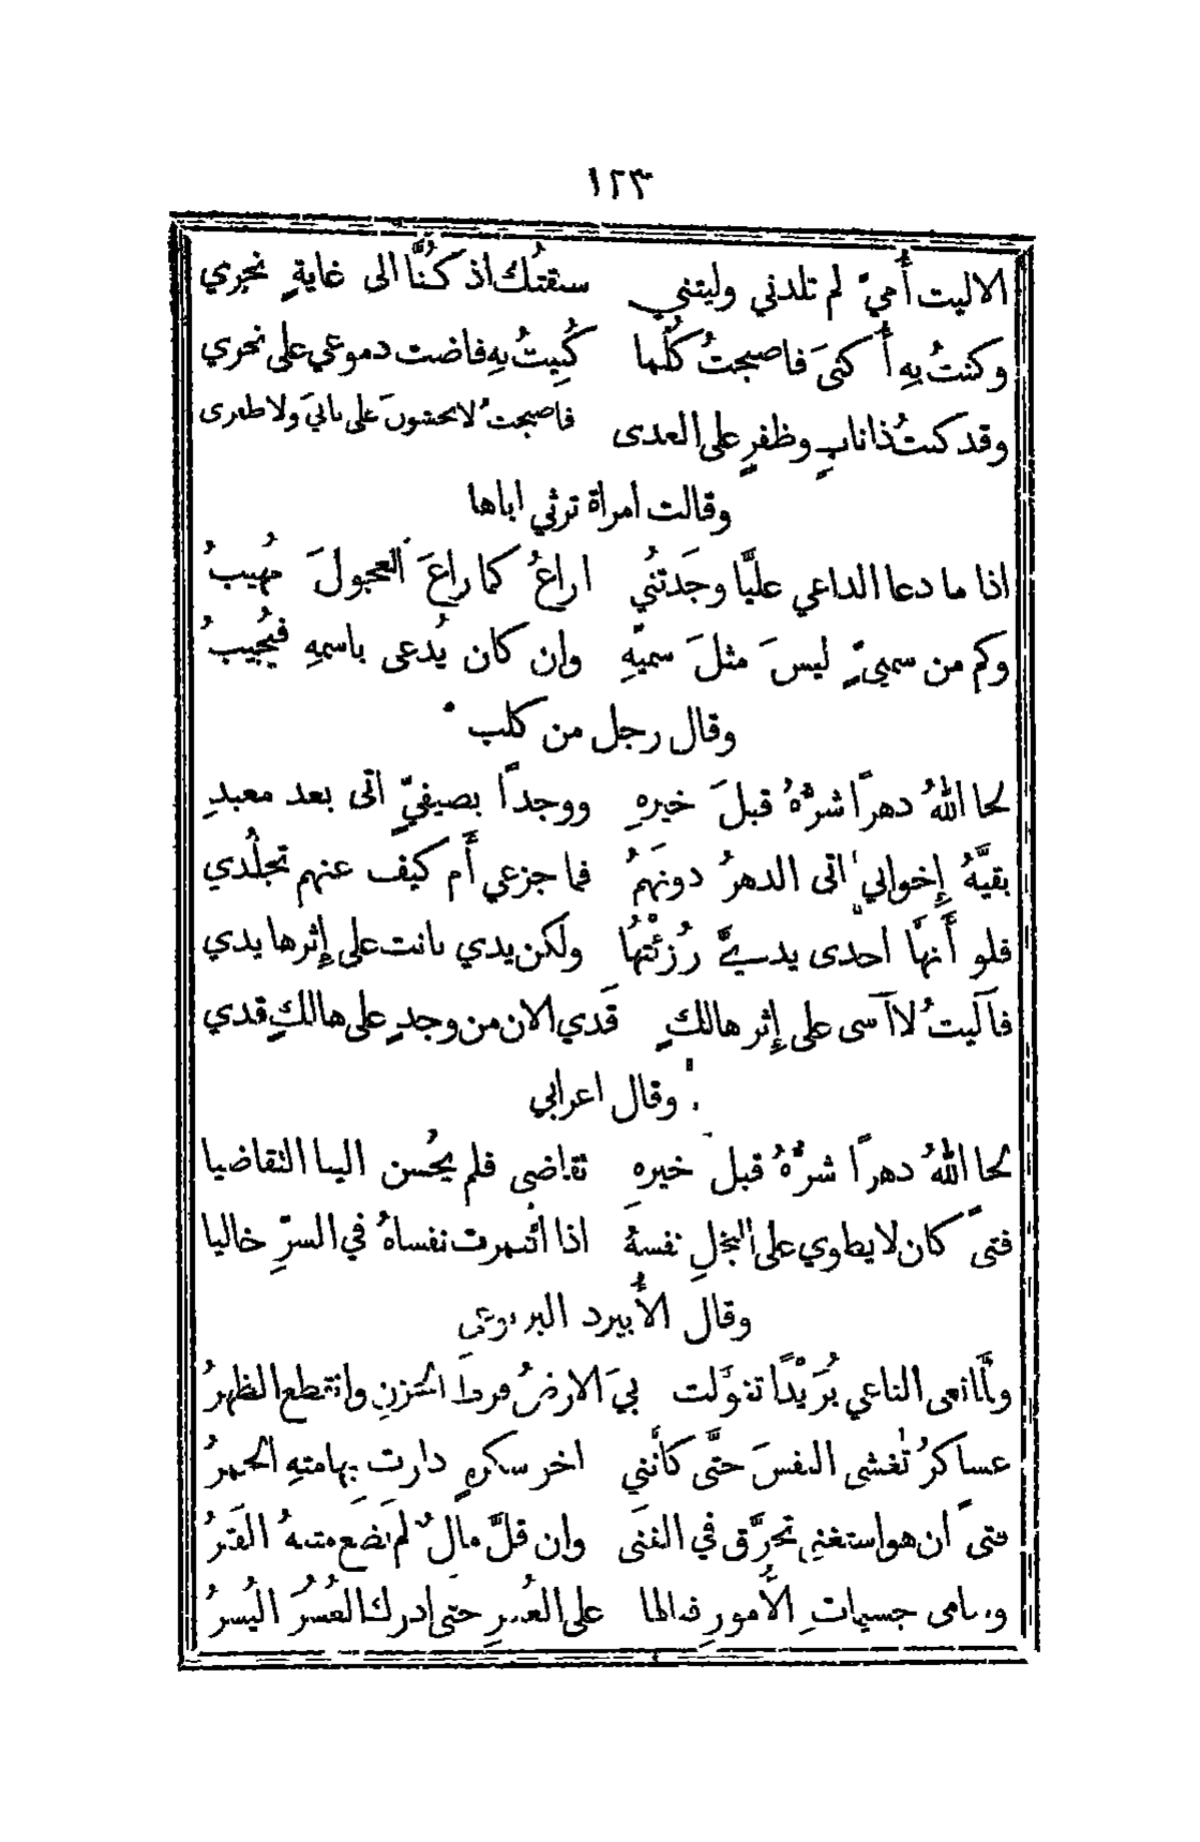 ١٢٣
الاليت أُميّ لم تلدني وليتني سبقتُك اذ كُنَّا الى غايةٍ نجري
وكنتُ بِهِ أُكنىَ فاصبحتُ كُلَّما كُنِيتُ بِهِ فاضت دموعي على نحري
وقد كنتُ ذا نابٍ وظفرٍ على العدى فاصبحتُ لا يخشونَ على نابيَ ولا ظفرى
وقالت امراة ترثي اباها
اذا ما دعا الداعي عليًّا وجَدتُني اراعُ كما راعَ العجولَ مُهيبُ
وكم من سميٍّ ليسَ مثلَ سميّهِ وان كان يُدعى باسمهِ فيُجيبُ
وقال رجل من كلب
لحا اللهُ دهراً شرُّهُ قبلَ خيرهِ ووجداً بصيفيٍّ اتى بعد معبدِ
بقيَّهُ إِخواني اتى الدهرُ دونَهمُ فما جزعي أَم كيف عنهم تجلُّدي
فلو أَنهاَّ احدى يديَّ رُزئتُها ولكن يدي بانت على إِثرها يدي
فآليتُ لا آسى على إِثر هالكٍ قَدي الان من وجدٍ على هالكٍ قدي
وقال اعرابي
لحا اللهُ دهراً شرُّهُ قبلَ خيرهِ تقاضى فلم يُحسن الينا التقاضيا
فتىً كان لا يطوي على البخلِ نفسهُ اذا ائتمرت نفساهُ في السرِّ خاليا
وقال الأُبيرد اليربوعي
ولمَّا نعى الناعي بُرَيْدًا تغوَّلت بيَ الارضُ فرطَ الحُزنِ وانقطع الظهرُ
عساكرُ تَغشى النفسَ حتَّى كأَنني اخر سكرهٍ دارت بهامتهِ الخمرُ
فتىً ان هو استغنى تخرَّق في الغنَى وان قلَّ مالٌ لم يَضَع متنهُ الفَقرُ
وسامى جسيمات الأُمورِ فنالها على العُسرِ حتى ادرك العُسُرَ اليُسرُ